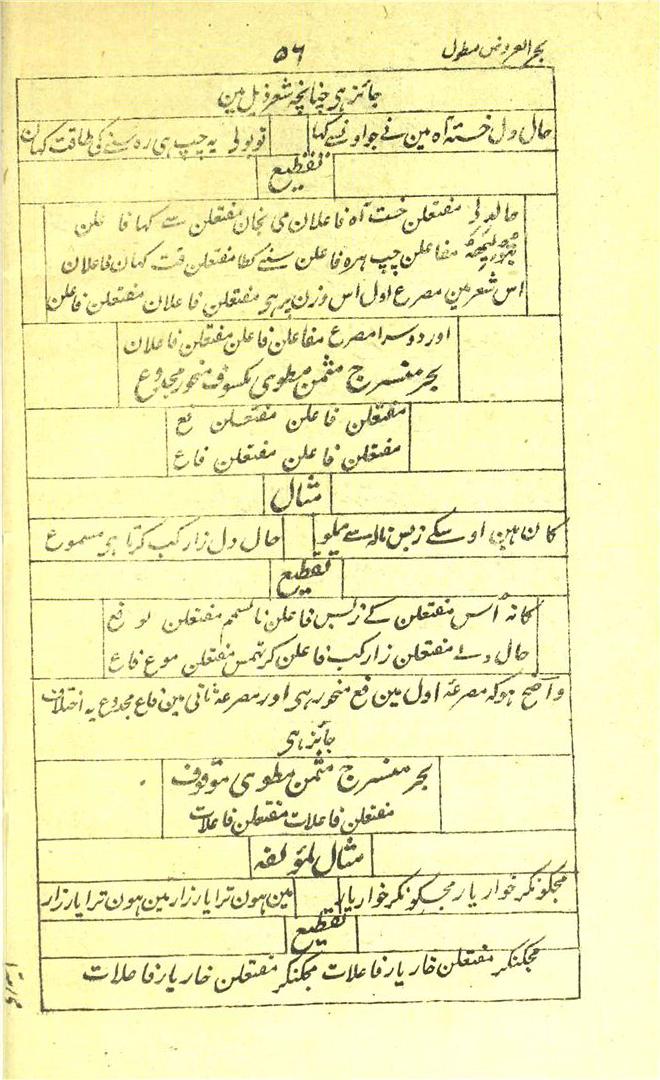 بحر العروض مطول
۵۶
جائز ہی چنانچہ شعر ذیل مین
حال دل خستہ آہ مین نے جو اوسنے کہا
تو بولی یہ چپ ہی رہ سننے کی طاقت کہان
تقطیع
حالدلے مفتعلن خست آہ فاعلان می نجان مفتعلن سے کہا فاعلن
مفاعلن چپ ہیرہ فاعلن سننے کطا مفتعلن قت کہان فاعلان
اس شعر مین مصرع اول اس وزن پر ہی مفتعلن فاعلان مفتعلن فاعلن
اور دوسرا مصرع مفاعلن فاعلن مفتعلن فاعلان
بحر منسرج مثمن مطوی مکسوف منحور مجدوع
مفتعلن فاعلن مفتعلن فع
مفتعلن فاعلن مفتعلن فاع
مثال
کان ہین اوسکے زبس نالہ سے مملو
حال دل زار کب کرتا ہی مسموع
تقطیع
کانہ اُس مفتعلن کے زبس فاعلن مفتعلن لو فع
حال دلے مفتعلن زار کب فاعلن کرتہمس مفتعلن موع فاع
واضح ہو کہ مصرعۂ اول مین فع منحور ہی اور مصرعۂ ثانی مین فاع مجدوع یہ اختلاف
جائز ہی
بحر منسرج مثمن مطوی موقوف
مفتعلن فاعلات مفتعلن فاعلات
مثال لمؤلفہ
مجکو نکر خوار یار مجکو نکر خوار یار
مین ہون ترا یار زار مین ہون ترا یار زار
تقطیع
مجکنکر مفتعلن خار یار فاعلات مجکنکر مفتعلن خار یار فاعلات